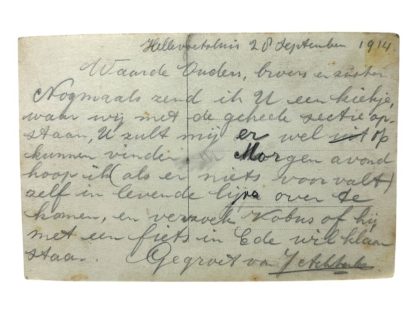 Hellevoetsluis 28 September 1914.
Waarde Ouders, broers en zuster
Nogmaals zend ik U een kiekje,
waar wij met de geheele sectie op-
staan, U zult mij er wel op
kunnen vinden Morgen avond
hoop ik (als er niets voorvalt)
zelf in levende lijve over te
komen, en verzoek Kobus of hij
met een fiets in Ede wil klaar
staan. Gegroet van